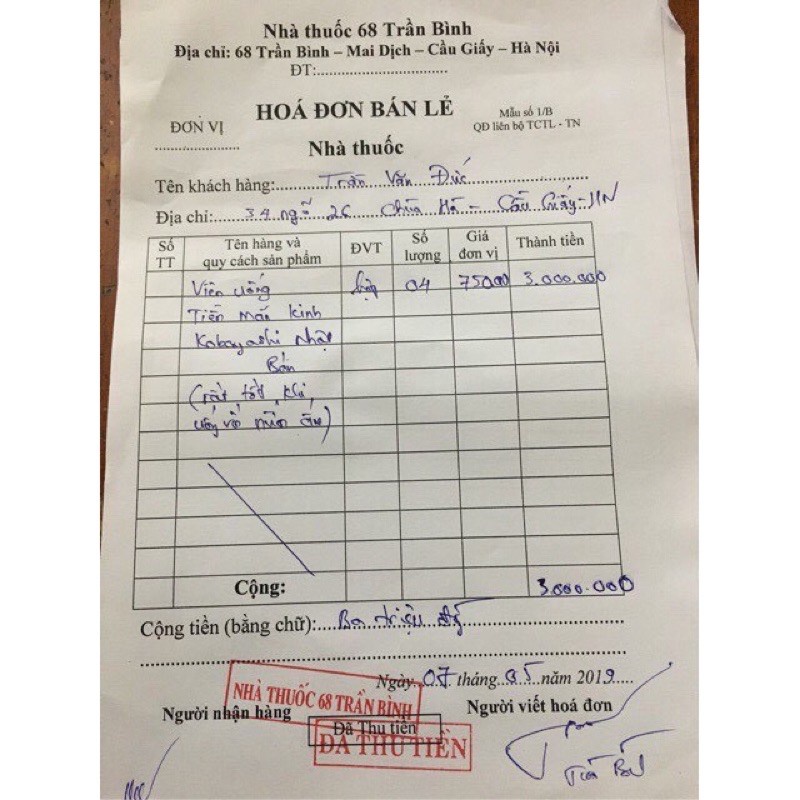 Nhà thuốc 68 Trần Bình
Địa chỉ: 68 Trần Bình – Mai Dịch – Cầu Giấy – Hà Nội
ĐT:.................................
HOÁ ĐƠN BÁN LẺ
Mẫu số 1/B
QĐ liên bộ TCTL - TN
ĐƠN VỊ
......................
Nhà thuốc
Tên khách hàng: Trần Văn Đức
Địa chỉ: 34 ngõ 26 Chùa Hà – Cầu Giấy - HN
Số TT Tên hàng và quy cách sản phẩm ĐVT Số lượng Giá đơn vị Thành tiền
Viên uống hộp 04 75000 3.000.000
Tiền mãn kinh
Kobayashi Nhật
Bản
(rất tốt khi
uống
Cộng: 3.000.000
Cộng tiền (bằng chữ): Ba triệu
Ngày 07 tháng 05 năm 2019
NHÀ THUỐC 68 TRẦN BÌNH
Người nhận hàng
Người viết hoá đơn
Đã Thu tiền
ĐÃ THU TIỀN